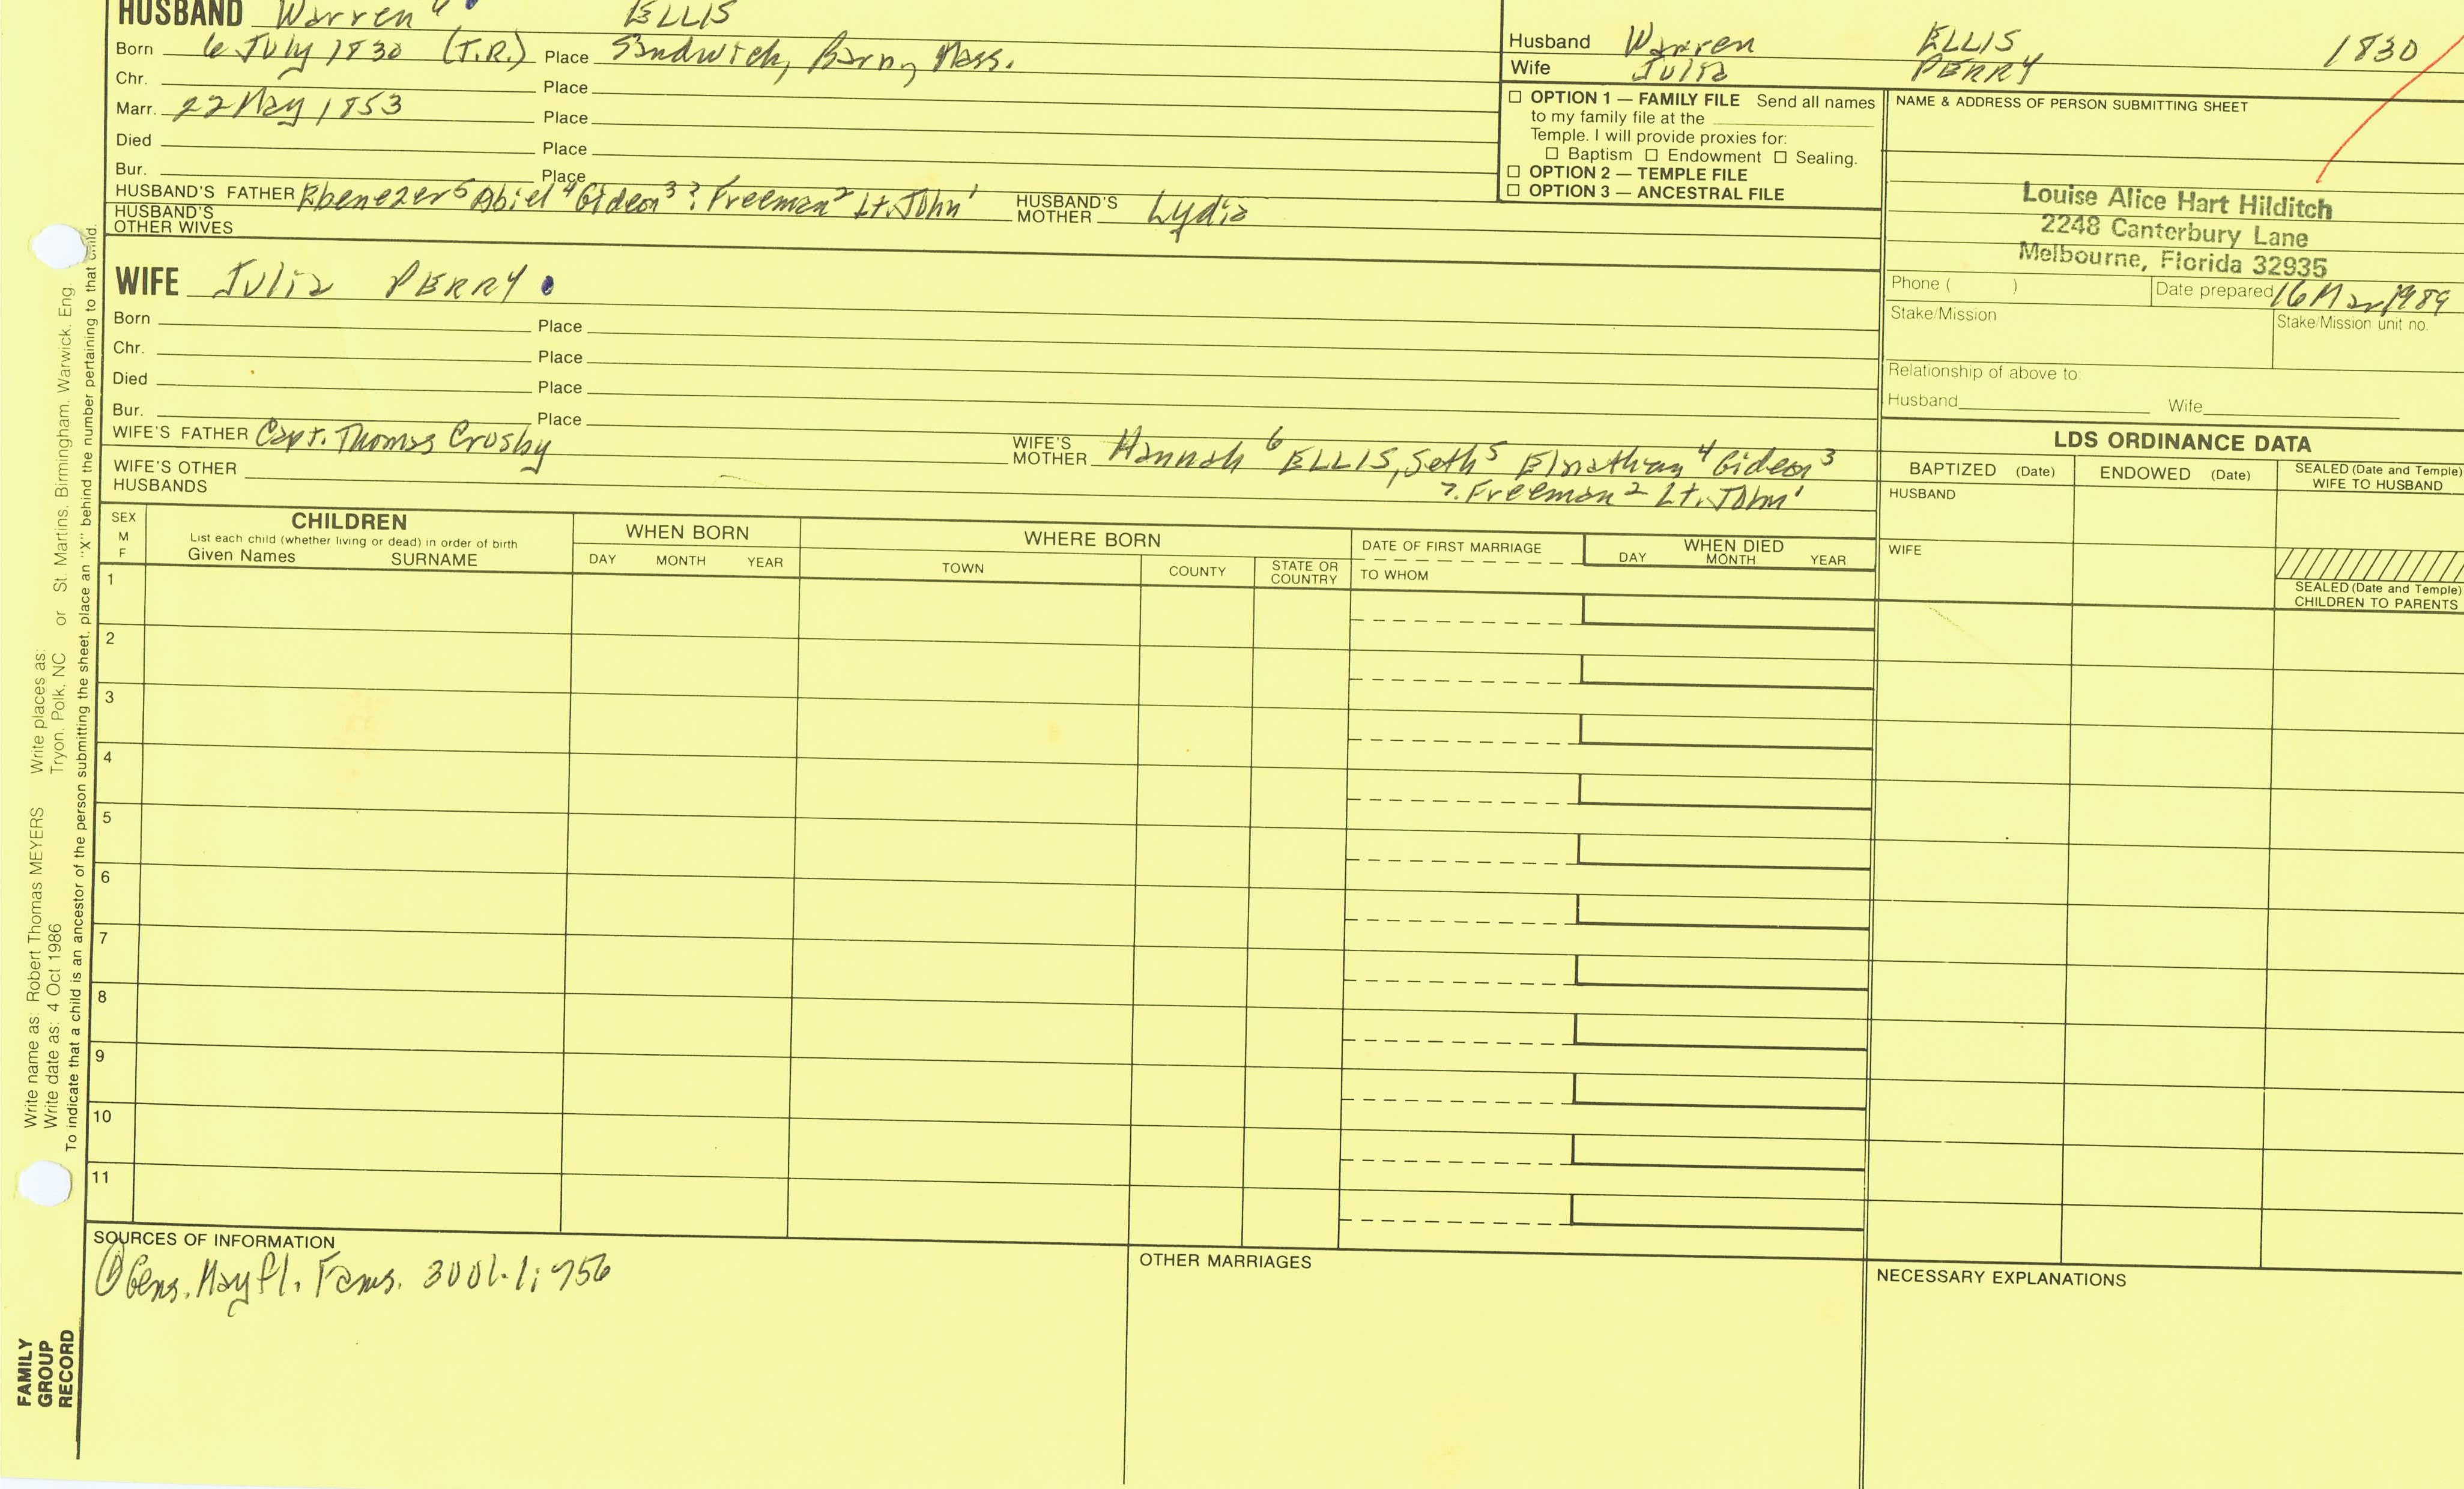 HUSBAND Warren ELLIS
Born 6 July 1830 (T.R.) Place Sandwich, Barn, Mass.
Chr. Place
Marr. 22 May 1853 Place
Died Place
Bur. Place
HUSBAND'S FATHER Ebenezer⁵ Abiel⁴ Gideon³ ? Freeman² Lt. John¹ HUSBAND'S MOTHER Lydia
HUSBAND'S OTHER WIVES
WIFE Julia PERRY
Born Place
Chr. Place
Died Place
Bur. Place
WIFE'S FATHER Capt. Thomas Crosby WIFE'S MOTHER Hannah⁶ ELLIS, Seth⁵ Elnathan⁴ Gideon³
?. Freeman² Lt. John¹
WIFE'S OTHER HUSBANDS
Husband Warren ELLIS 1830
Wife Julia PERRY
☐ OPTION 1 — FAMILY FILE Send all names
to my family file at the
Temple. I will provide proxies for:
☐ Baptism ☐ Endowment ☐ Sealing.
☐ OPTION 2 — TEMPLE FILE
☐ OPTION 3 — ANCESTRAL FILE
NAME & ADDRESS OF PERSON SUBMITTING SHEET
Louise Alice Hart Hilditch
2248 Canterbury Lane
Melbourne, Florida 32935
Phone ( ) Date prepared 16 Mar 1989
Stake/Mission Stake/Mission unit no.
Relationship of above to:
Husband Wife
LDS ORDINANCE DATA
BAPTIZED (Date) ENDOWED (Date) SEALED (Date and Temple)
WIFE TO HUSBAND
HUSBAND
WIFE
SEALED (Date and Temple)
CHILDREN TO PARENTS
SEX
M
F
CHILDREN
List each child (whether living or dead) in order of birth
Given Names SURNAME
WHEN BORN
DAY MONTH YEAR
WHERE BORN
TOWN COUNTY STATE OR COUNTRY
DATE OF FIRST MARRIAGE
TO WHOM
WHEN DIED
DAY MONTH YEAR
1
2
3
4
5
6
7
8
9
10
11
SOURCES OF INFORMATION
① Gens. Mayfl. Fams. 3 Vol. 1; 756
OTHER MARRIAGES
NECESSARY EXPLANATIONS
Write name as: Robert Thomas MEYERS Write places as:
Write date as: 4 Oct 1986 Tryon, Polk, NC or St. Martins, Birmingham, Warwick, Eng
To indicate that a child is an ancestor of the person submitting the sheet, place an "X" behind the number pertaining to that child.
FAMILY
GROUP
RECORD